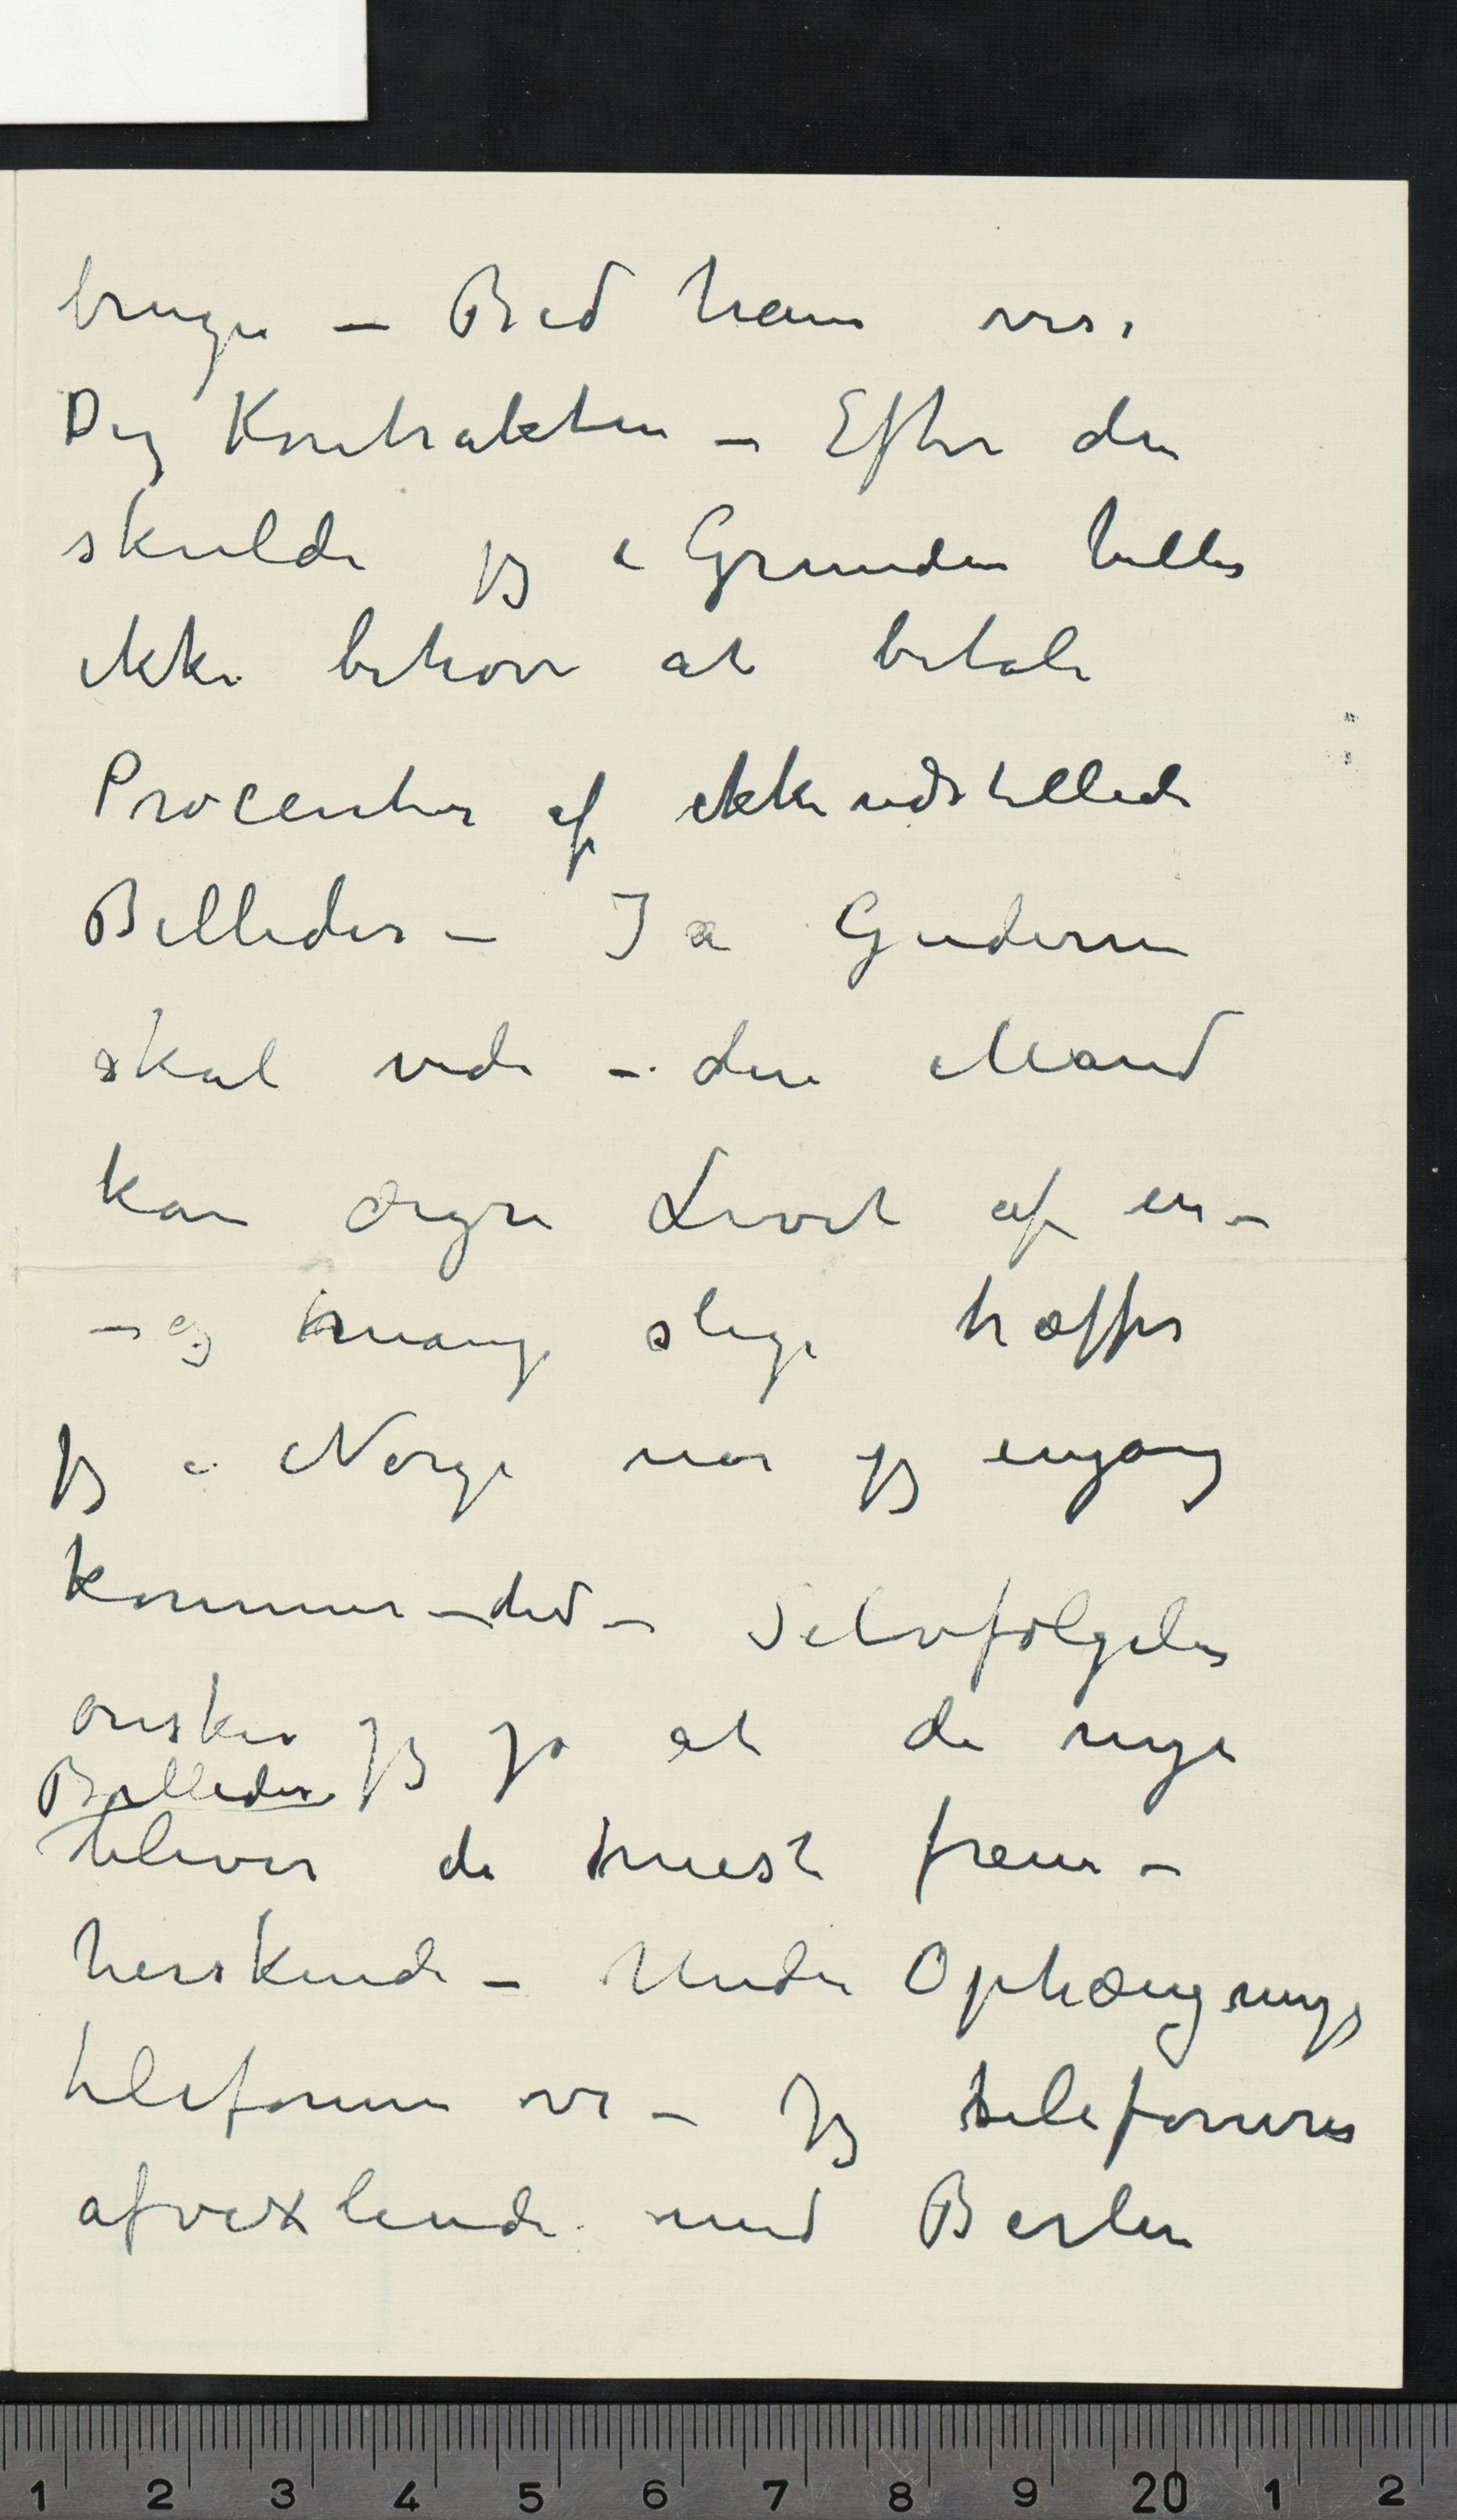 bruge – Bed ham vise
Dig Kontrakten – Efter den
skulde jeg i Grunden heller
ikke behøve at betale
Procenter af ikke udstillede
Billeder – Ja Guderne
skal vide – den Mand
kan ærgre Livet af en –
– og mange slige træffer
jeg i Norge når jeg engang
kommer – did – Selvfølgelig
ønsker jeg jo at de nye
Billeder
bliver de mest frem-
herskende – Under Ophængnings
telefonere vi – Jeg telefonerer
afvexlende med Berlin
1 2 3 4 5 6 7 8 9 20 1 2